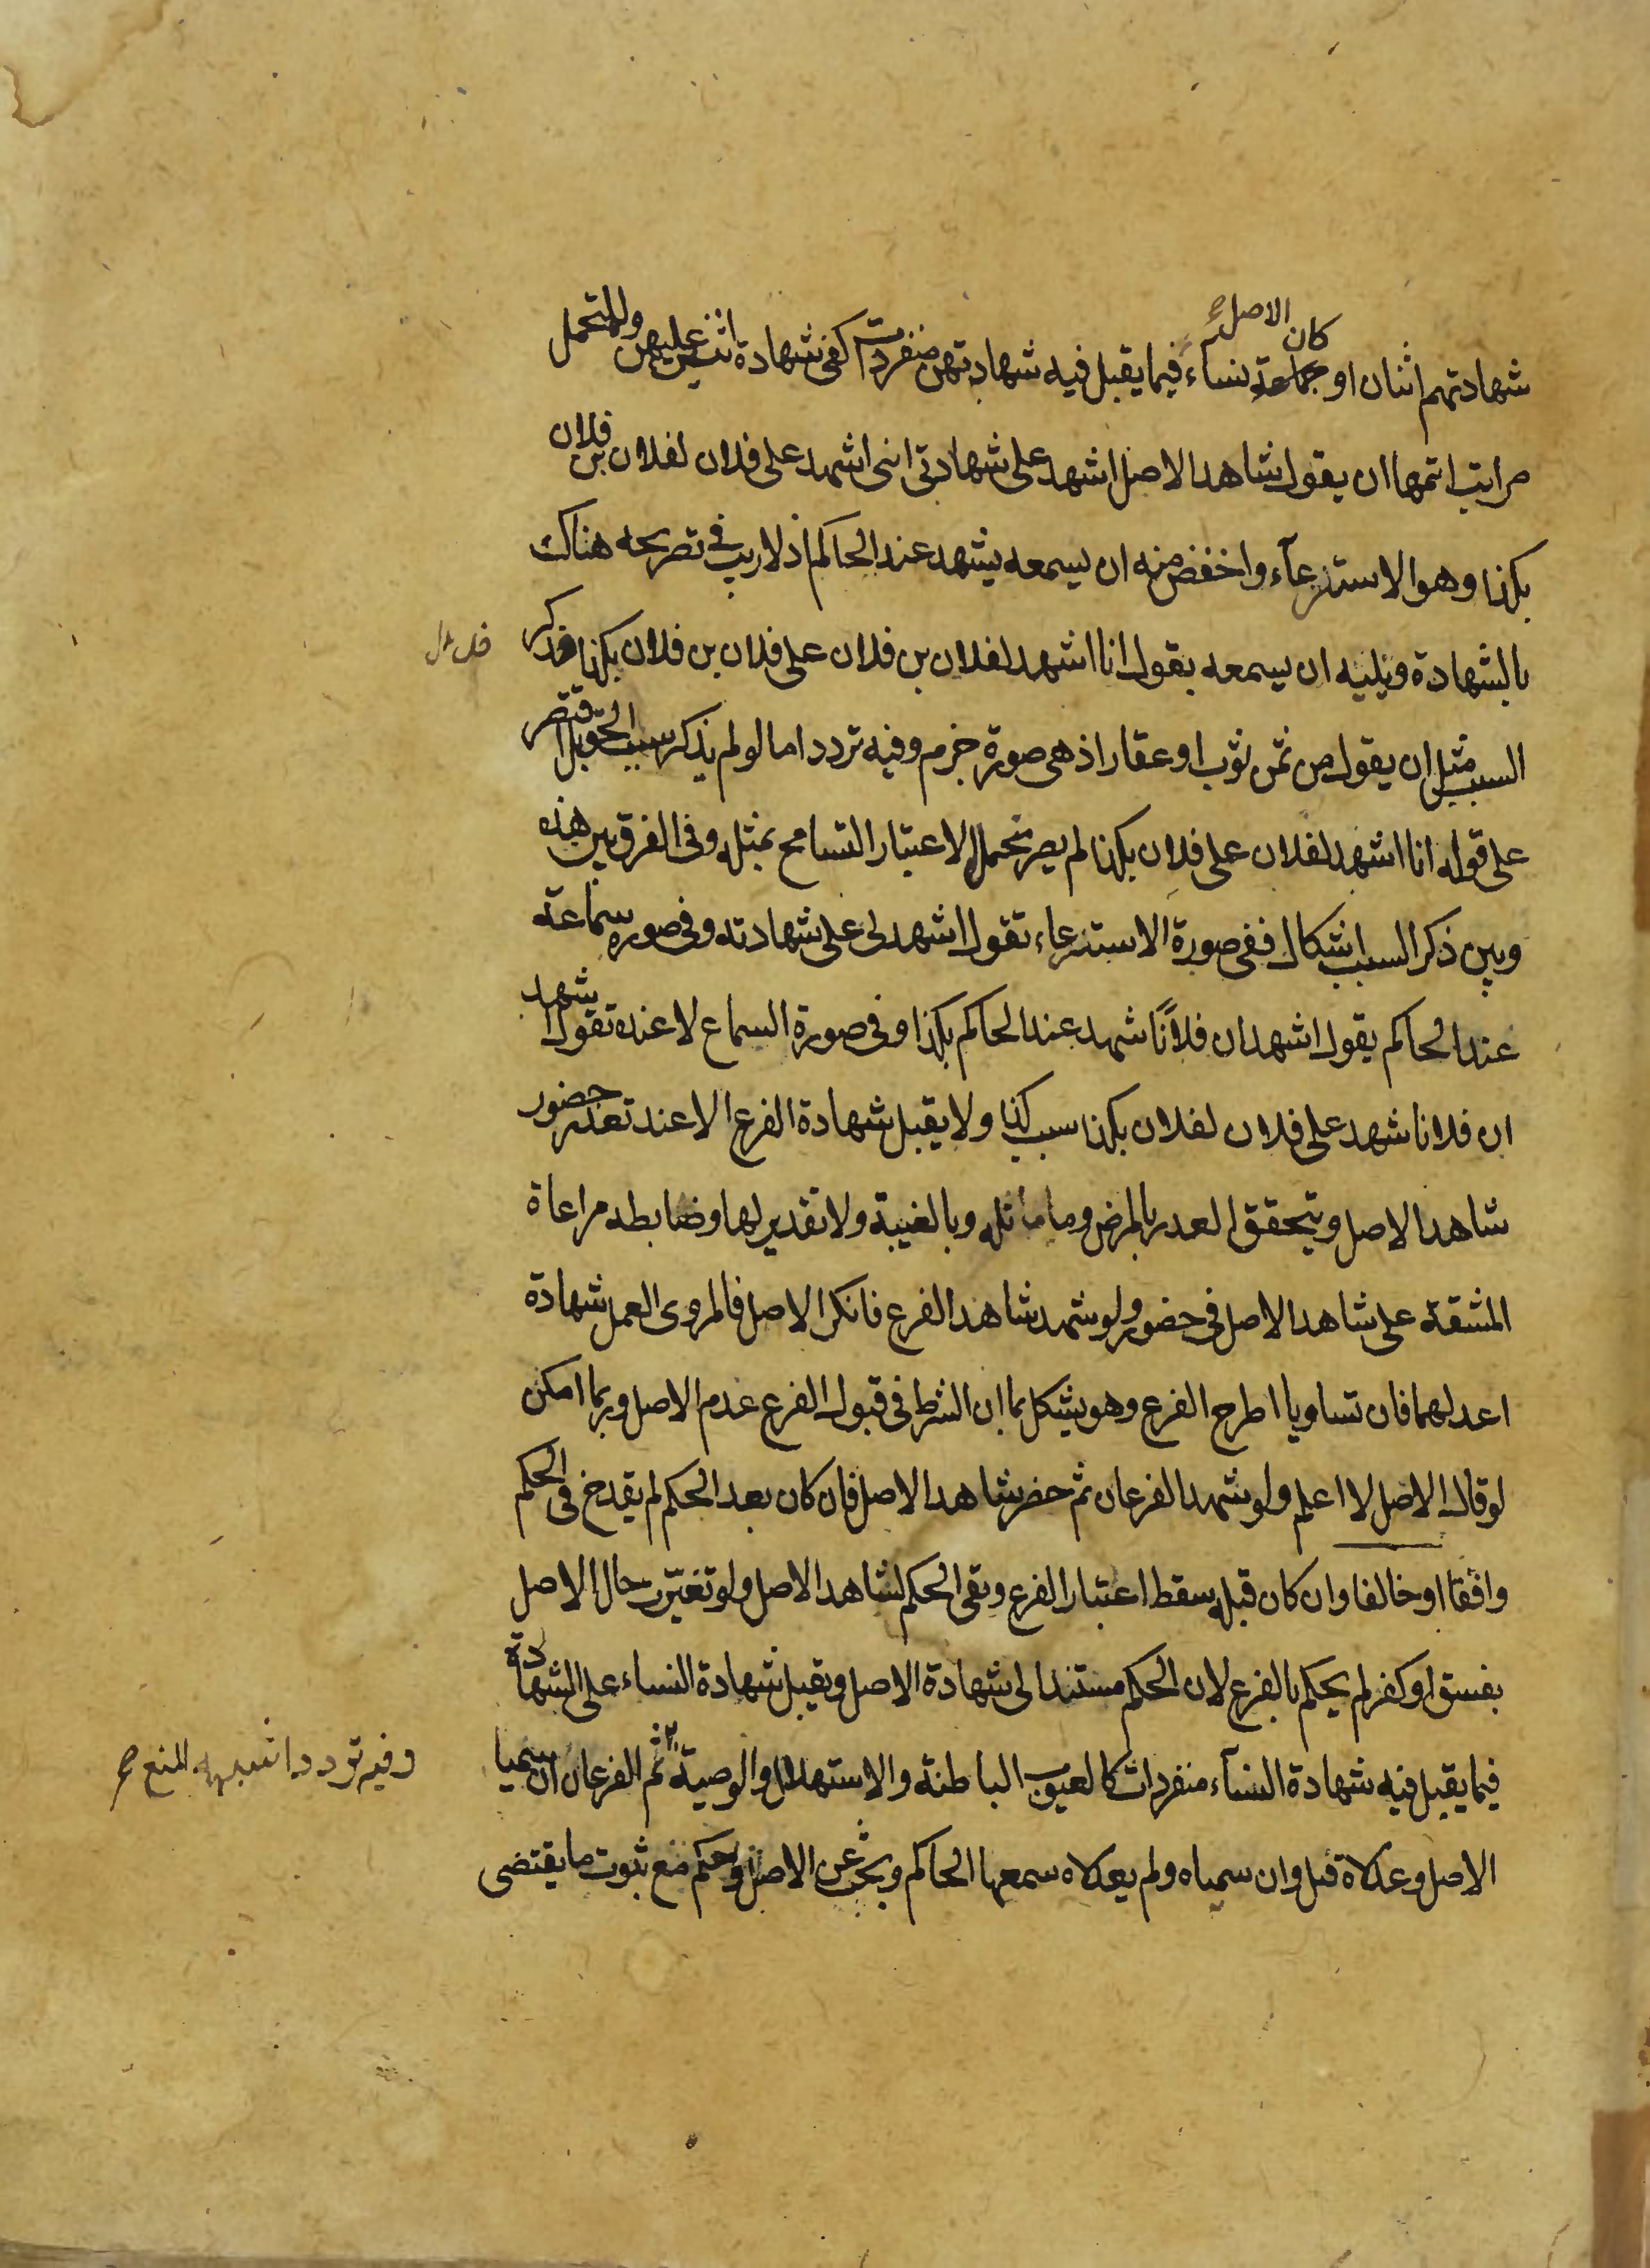 شهادتهم اثنان او كان الاصل جماعة نساء فيما يقبل فيه شهادتهن منفردات كفى شهادة اثنين عليهن وللتحمل
مراتب اتمها ان يقول شاهد الاصل اشهد على شهادتي انني اشهد على فلان لفلان بن فلان
بكذا وهو الاسترعآء واخفض منه ان يسمعه يشهد عند الحاكم اذ لا ريب في تصريحه هناك
بالشهادة ويليه ان يسمعه يقول انا اشهد لفلان بن فلان على فلان بن فلان بكذا فذكر
السبب مثل ان يقول من ثمن ثوب او عقار اذ هي صورة جزم وفيه تردد اما لو لم يذكر سبب الحق بل اقتصر
على قوله انا اشهد لفلان على فلان بكذا لم يصر متحملا لاعتبار التسامح بمثله وفي الفرق بين هذه
وبين ذكر السبب اشكال ففي صورة الاسترعاء تقول اشهدني على شهادته وفي صورة سماعته
عند الحاكم يقول اشهد ان فلانًا شهد عند الحاكم بكذا وفي صورة السماع لا عنده تقول اشهد
ان فلانا شهد على فلان لفلان بكذا سبب كذا ولا يقبل شهادة الفرع الا عند تعذر حضور
شاهد الاصل ويتحقق العدر بالمرض وما ماثله وبالغيبة ولا تقدير لها وضابطه مراعاة
المشقة على شاهد الاصل في حضوره ولو شهد شاهد الفرع فانكر الاصل فالمروى العمل شهادة
اعدلهما فان تساويا اطرح الفرع وهو يشكل بما ان الشرط في قبول الفرع عدم الاصل وربما امكن
لو قال الاصل لا اعلم ولو شهد الفرعان ثم حضر شاهد الاصل فان كان بعد الحكم لم يقدح في الحكم
وافقا او خالفا وان كان قبله سقط اعتبار الفرع وبقى الحكم لشاهد الاصل ولو تغيّر حال الاصل
بفسق او كفر لم يحكم بالفرع لان الحكم مستند الى شهادة الاصل ويقبل شهادة النساء على الشهادة
فيما يقبل فيه شهادة النسآء منفردات كالعيوب الباطنة والاستهلال والوصية ثم الفرعان ان سميا
وفيه تردد اشبهه المنع صح
الاصل وعدلاه قبل وان سمياه ولم يعدلاه سمعها الحاكم وبحث عن الاصل وحكم مع ثبوت ما يقتضى